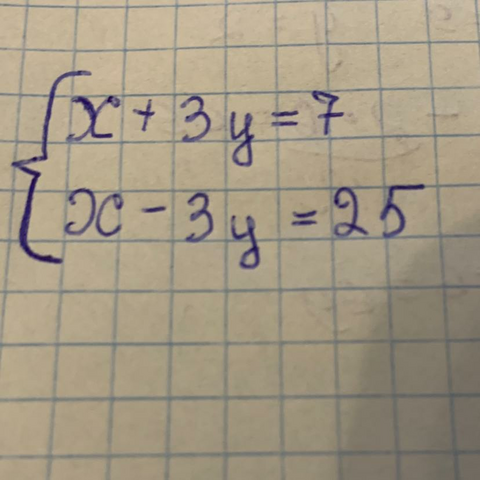 x + 3y = 7
x - 3y = 25